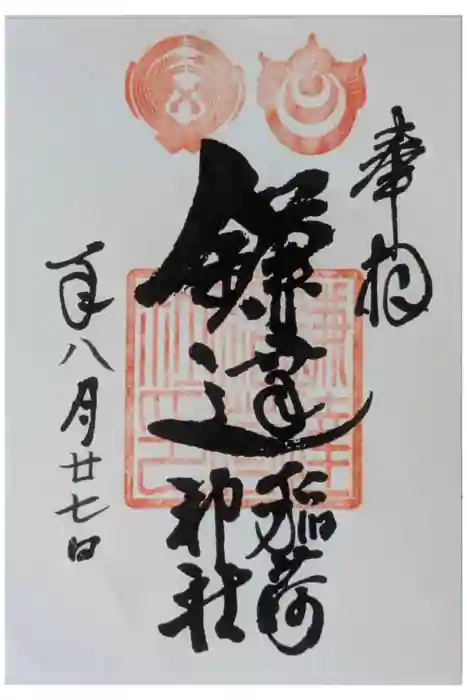 奉拝
鎌達
稲荷
神社
年八月廿七日